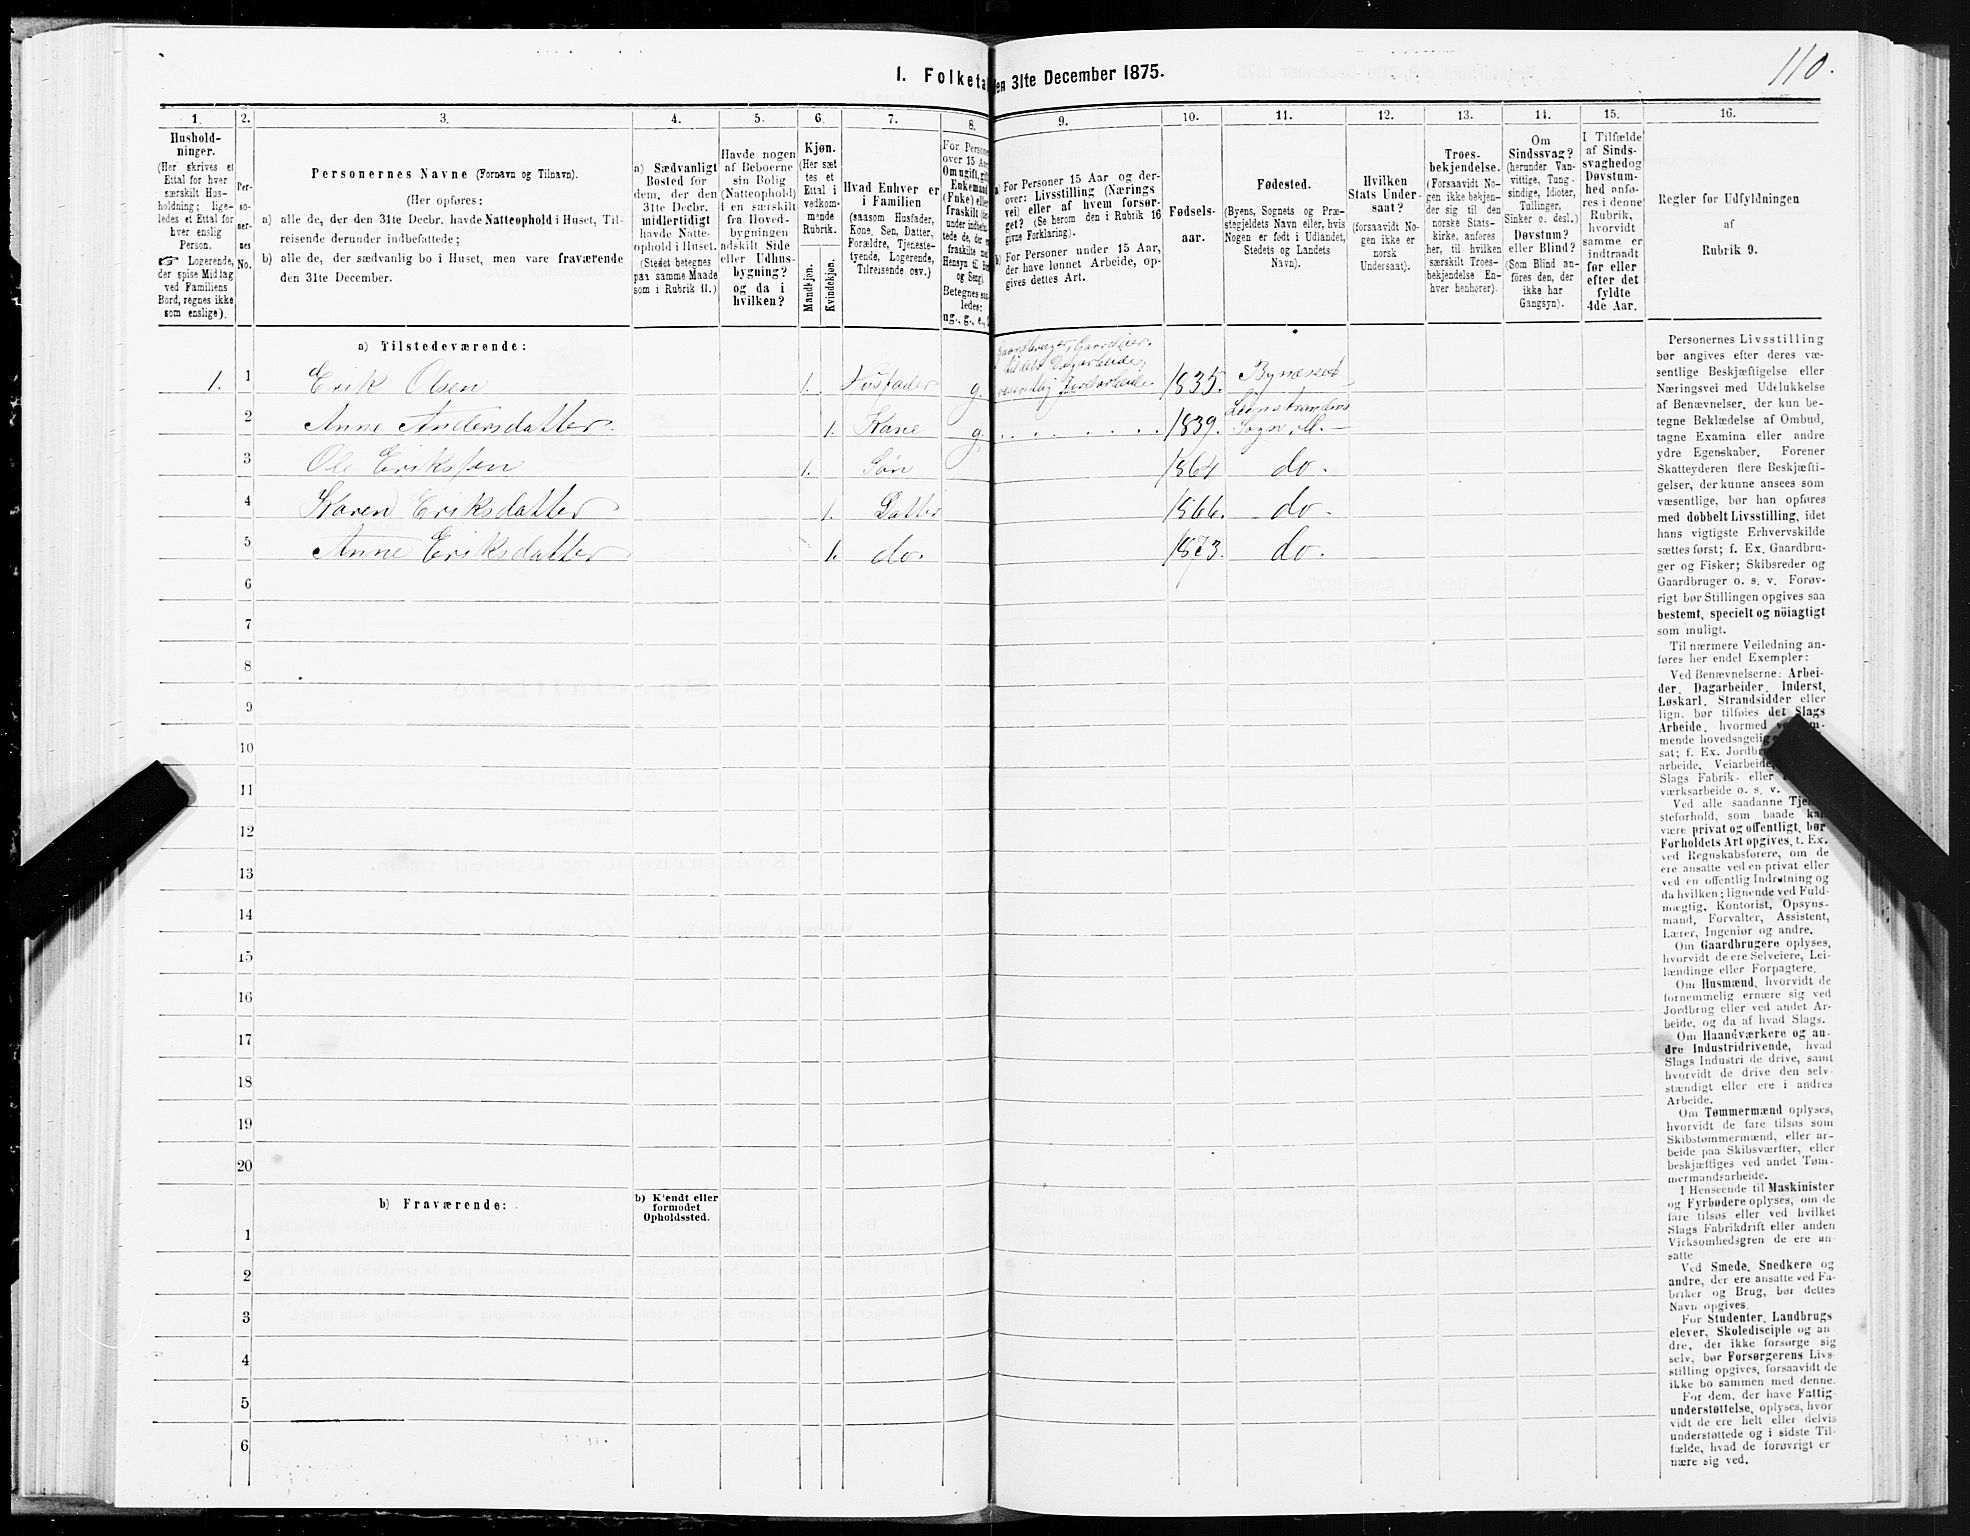 110.
1. Folketa en 31te December 1875.
1. 2. 3. 4. 5. 6. 7. 8. 9. 10. 11. 12. 13. 14. 15. 16.
Hushold-
ninger.
(Her skrives et
Ettal for hver
særskilt Hus-
holdning; lige-
ledes et Ettal for
hver enslig
Person.
☞ Logerende,
der spise Middag
ved Familiens
Bord, regnes ikke
som enslige).
Per-
so-
ner-
nes
No.
Personernes Navne (Fornavn og Tilnavn).
(Her opføres:
a) alle de, der den 31te Decbr. havde Natteophold i Huset, Til-
reisende derunder indbefattede;
b) alle de, der sædvanlig bo i Huset, men vare fraværende
den 31te December.
a) Sædvanligt
Bosted for
dem, der den
31te Decbr.
midlertidigt
havde Natte-
ophold i Huset.
(Stedet betegnes
paa samme Maade
som i Rubrik 11.)
Havde nogen
af Beboerne
sin Bolig
(Natteophold)
i en særskilt
fra Hoved-
bygningen
adskilt Side
eller Udhus-
bygning?
og da i
hvilken?
Kjøn.
(Her sæt
tes et
Ettal i
vedkom-
mende
Rubrik.
Mandkjøn.
Kvindekjøn.
Hvad Enhver er
i Familien
(saasom Husfader,
Kone, Søn, Datter,
Forældre, Tjeneste-
tyende, Logerende,
Tilreisende osv.)
For Person
over 15 Aar
Om ugift, gift
Enkemand
(Enke) elle
fraskilt
under indbe
tede de, der e
fraskilte me
Hensyn til Bo
og Seng).
Betegnes saa
ledes:
ug., g., e.,
a) For Personer 15 Aar og der-
over: Livsstilling (Nærings
vei) eller af hvem forsør-
get? (Se herom den i Rubrik 16
givne Forklaring).
b) For Personer under 15 Aar,
der have lønnet Arbeide, op-
gives dettes Art.
Fødsels-
aar.
Fødested.
(Byens, Sognets og Præ-
stegjeldets Navn eller, hvis
Nogen er født i Udlandet,
Stedets og Landets
Navn).
Hvilken
Stats Under-
saat?
(forsaavidt No-
gen ikke er
norsk
Undersaat).
Troes-
bekjendelse.
(Forsaavidt No-
gen ikke bekjen-
der sig til den
norske Stats-
kirke, anføres
her, til hvilken
særskilt Troes-
bekjendelse En-
hver henhører).
Om
Sindssvag?
(herunder Van-
vittige, Tung-
sindige, Idioter,
Tullinger,
Sinker o. desl.)
Døvstum?
eller Blind?
(Som Blind an-
føres den, der
ikke har
Gangsyn).
I Tilfælde
af Sinds-
svaghedog
Døvstum-
hed anfø-
res i denne
Rubrik,
hvorvidt
samme er
indtraadt
før eller
efter det
fyldte
4de Aar.
Regler for Udfyldningen
af
Rubrik 9.
a) Tilstedeværende:
1. 1 Erik Olsen 1. Husfader g. Gaardbruger, Gaardeier. 1835. Bynæsset
2 Anne Andersdatter. 1. Kone g. 1839. Leinstrandens Sogn
3 Ole Eriksen 1. Søn 1864 do.
4 Karen Eriksdatter 1. Datter 1866. do.
5 Anne Eriksdatter 1. do. 1873. do.
6
7
8
9
10
11
12
13
14
15
16
17
18
19
20
b) Fraværende:
b) Kjendt eller
formodet
Opholdssted.
1
2
3
4
5
6
Personernes Livsstilling
bør angives efter deres væ-
sentlige Beskjæftigelse eller
Næringsvei med Udelukkelse
af Benævnelser, der kun be-
tegne Beklædelse af Ombud,
tagne Examina eller andre
ydre Egenskaber. Forener
Skatteyderen flere Beskjæfti-
gelser, der kunne ansees som
væsentlige, bør han opføres
med dobbelt Livsstilling, idet
hans vigtigste Erhvervskilde
sættes først; f. Ex. Gaardbru-
ger og Fisker; Skibsreder og
Gaardbruger o. s. v. Forøv-
rigt bør Stillingen opgives saa
bestemt, specielt og nöiagtigt
som muligt.
Til nærmere Veiledning an-
føres her endel Exempler:
Ved Benævnelserne: Arbei-
der, Dagarbeider, Inderst,
Løskarl, Strandsidder eller
lign. bør tilføies det Slags
Arbeide, hvormed
mende hovedsagelig
sat; f. Ex. Jordbr
arbeide, Veiarbeide,
Slags Fabrik- eller
værksarbeide o. s. v.
Ved alle saadanne Tjen
steforhold, som baade kan
være privat og offentligt, bør
Forholdets Art opgives, t. Ex.
ved Regnskabsførere, om de
ere ansatte ved en privat eller
ved en offentlig Indretning og
da hvilken; lignende ved Fuld-
mægtig, Kontorist, Opsyns-
mand, Forvalter, Assistent,
Lærer, Ingeniør og andre.
Om Gaardbrugere oplyses,
hvorvidt de ere Selveiere, Lei-
lændinge eller Forpagtere.
Om Husmænd, hvorvidt de
fornemmelig ernære sig ved
Jordbrug eller ved andet Ar-
beide, og da af hvad Slags.
Om Haandværkere og an-
dre Industridrivende, hvad
Slags Industri de drive, samt
hvorvidt de drive den selv-
stændigt eller ere i andres
Arbeide.
Om Tømmermænd oplyses,
hvorvidt de fare tilsøs som
Skibstømmermænd, eller ar-
beide paa Skibsværfter, eller
beskjæftiges ved andet Tøm-
mermandsarbeide.
I Henseende til Maskinister
og Fyrbødere oplyses, om de
fare tilsøs eller ved hvilket
Slags Fabrikdrift eller anden
Virksomhedsgren de ere an-
satte
Ved Smede, Snedkere og
andre, der ere ansatte ved Fa-
briker og Brug, bør dettes
Navn opgives.
For Studenter, Landbrugs
elever, Skoledisciple og an
dre, der ikke forsørge sig
selv, bør Forsørgerens Livs-
stilling opgives, forsaavidt de
ikke bo sammen med denne.
For dem, der have Fattig-
understøttelse, oplyses, hvor
vidt de ere helt eller delvis
understøttede og i sidste Til-
fælde, hvad de forøvrigt er
nære sig ved.